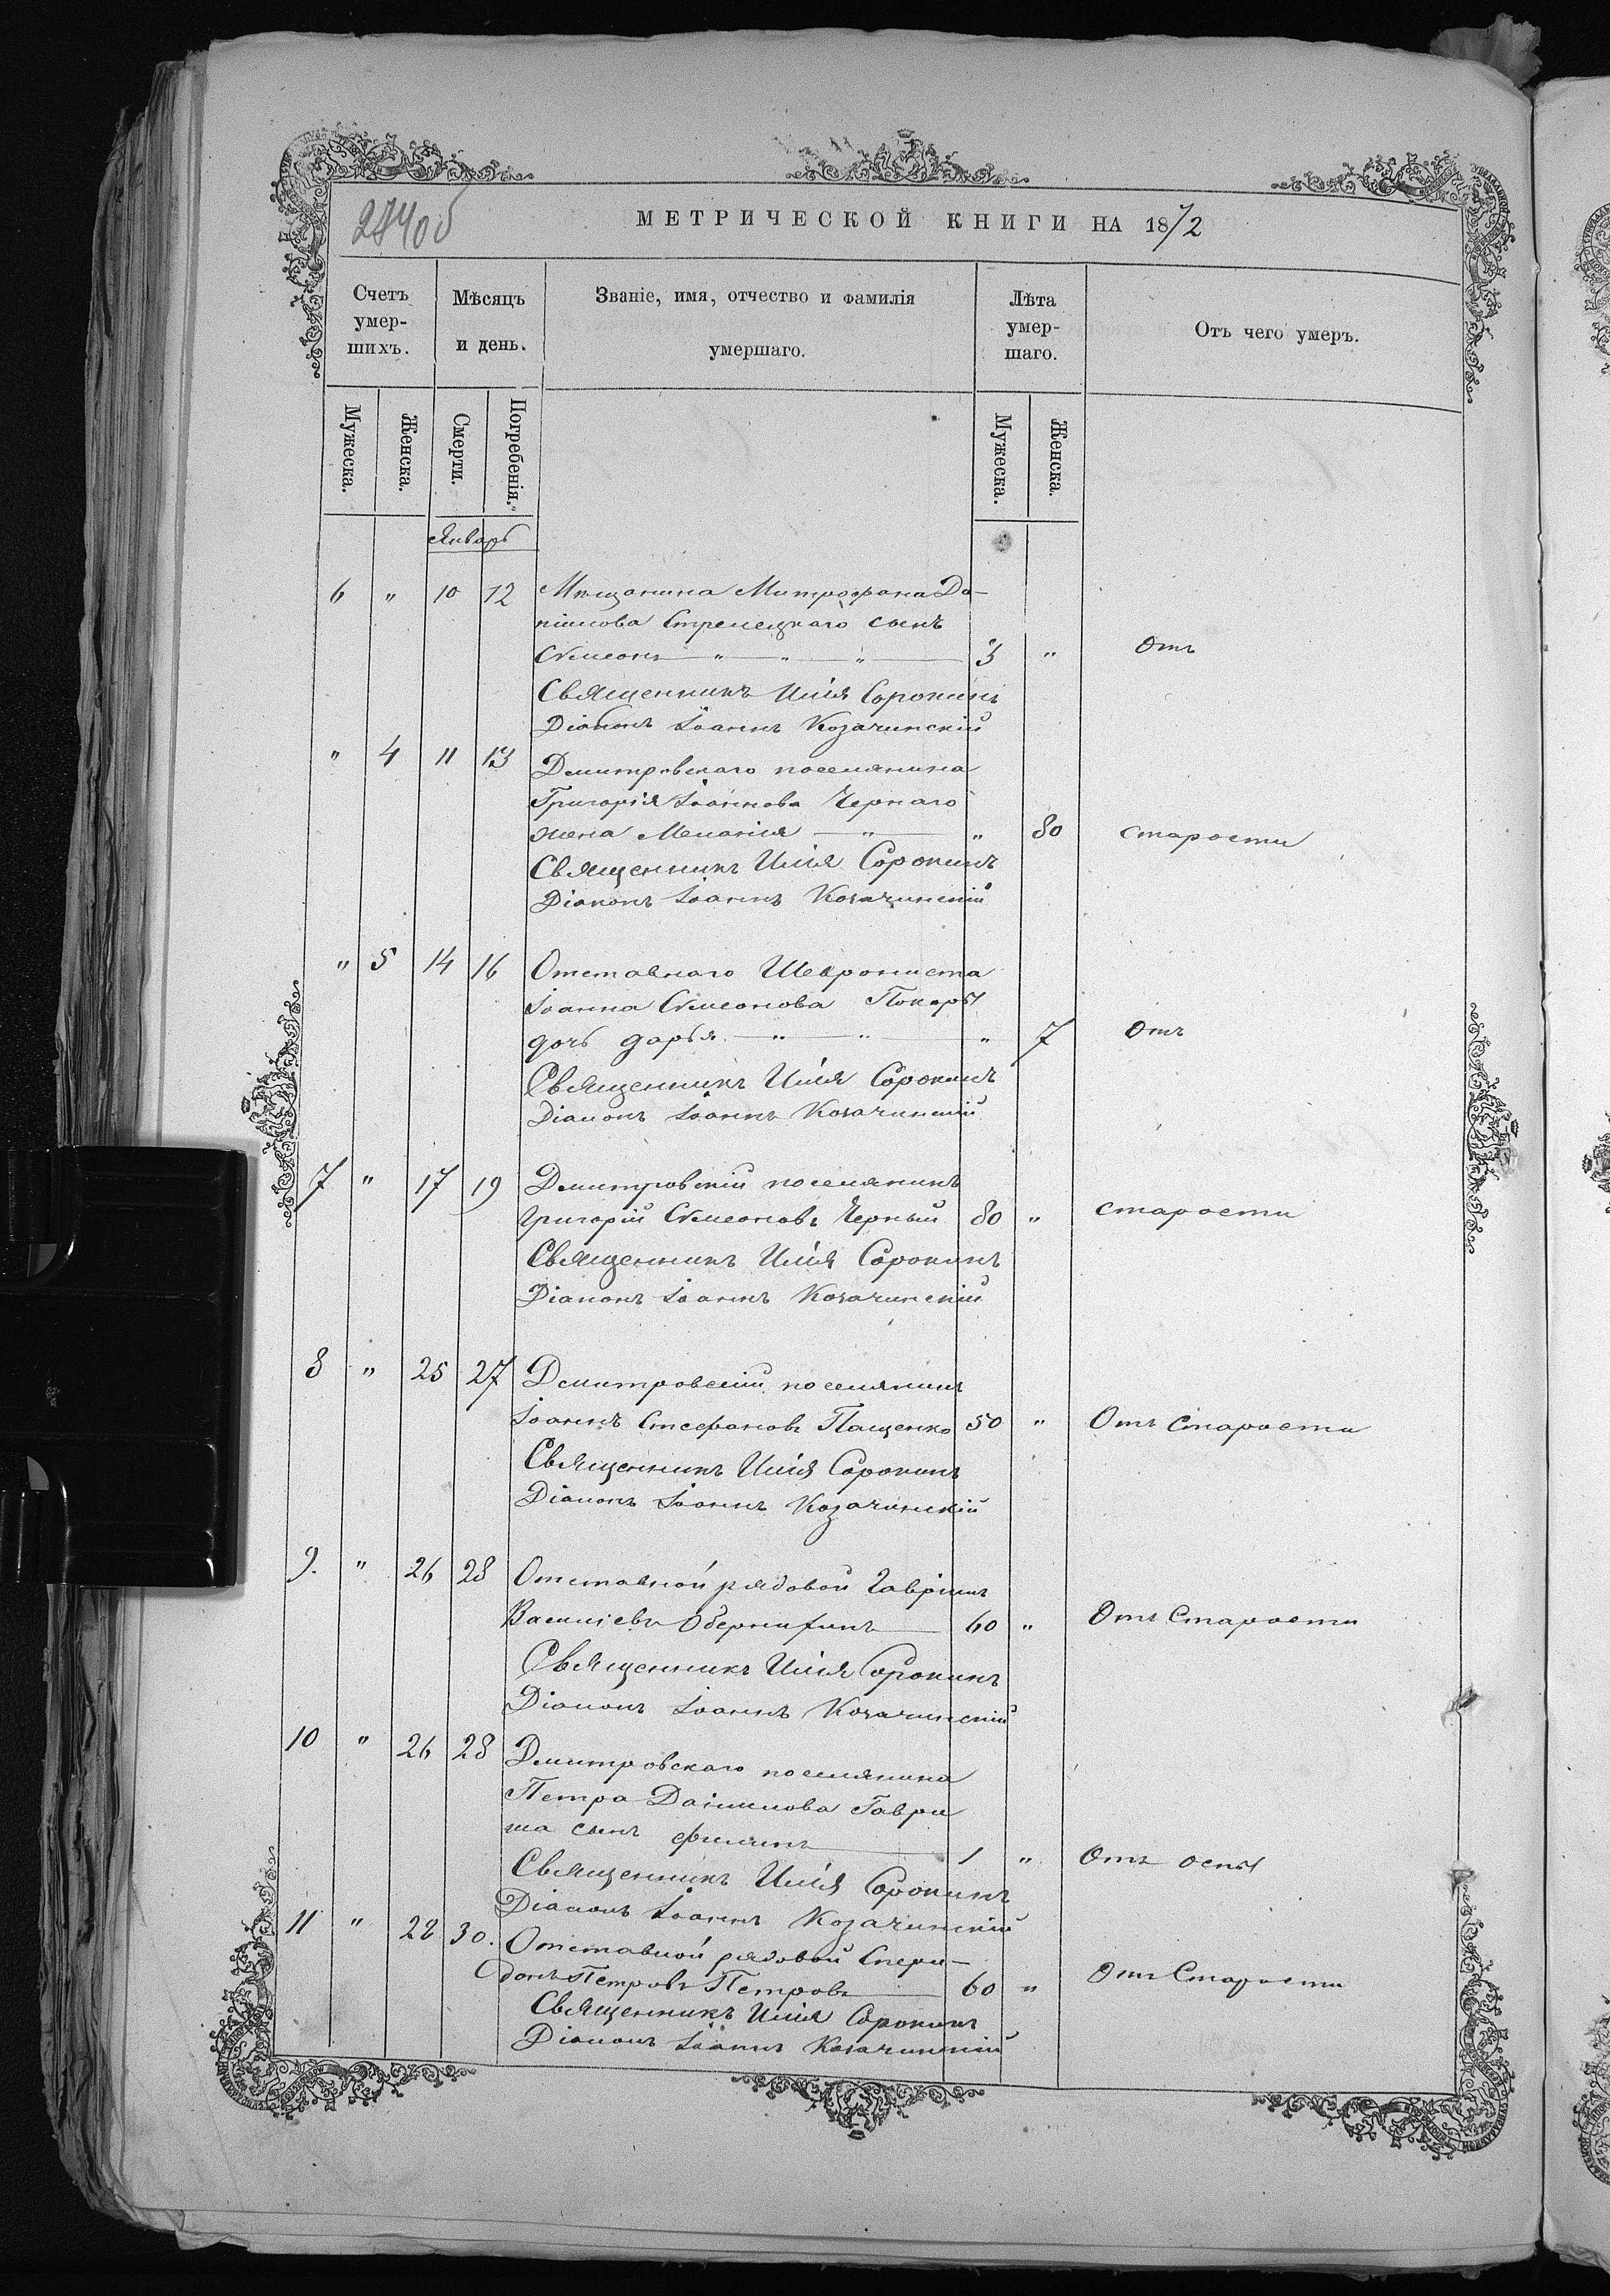 2840б
МЕТРИЧЕСКОЙ КНИГИ НА 1872
Счетъ умер-шихъ.
Мѣсяцъ и день.
Званіе, имя, отчество и фамилія умершаго.
Лѣта умер-шаго.
Отъ чего умеръ.
Мужеска.
Женска.
Смерти.
Погребенія.
Мужеска.
Женска.
Январь
6 " 10 12 Мѣщанина Митрофана Да-
ніилова Стрелецкаго сынъ
Симеонъ " " " 3 " Отъ
Священникъ Илія Сорокинъ
Діаконъ Іоаннъ Козачинскій
" 4 11 13 Дмитровскаго поселянина
Григорія Іоаннова Чернаго
жена Меланія " " 80 старости
Священникъ Илія Сорокинъ
Діаконъ Іоаннъ Козачинскій
" 5 14 16 Отставнаго Шеврониста
Іоанна Симеонова
дочь Дарья " " " 7 Отъ
Священникъ Илія Сорокинъ
Діаконъ Іоаннъ Козачинскій
7 " 17 19 Дмитровскій поселянинъ
Григорій Симеоновъ Черный 80 " старости
Священникъ Илія Сорокинъ
Діаконъ Іоаннъ Козачинскій
8 " 25 27 Дмитровскій поселянинъ
Іоаннъ Стефановъ Пащенко 50 " Отъ Старости
Священникъ Илія Сорокинъ
Діаконъ Іоаннъ Козачинскій
9. " 26 28 Отставной рядовой Гавріилъ
Василіевъ 60 " Отъ Старости
Священникъ Илія Сорокинъ
Діаконъ Іоаннъ Козачинскій
10 " 26 28 Дмитровскаго поселянина
Петра Даніилова Гаври
ша сынъ Филипъ 1 " Отъ оспы
Священникъ Илія Сорокинъ
Діаконъ Іоаннъ Козачинскій
11 " 28 30. Отставной рядовой Спери-
донъ Петровъ Петровъ 60 " Отъ Старости
Священникъ Илія Сорокинъ
Діаконъ Іоаннъ Козачинскій